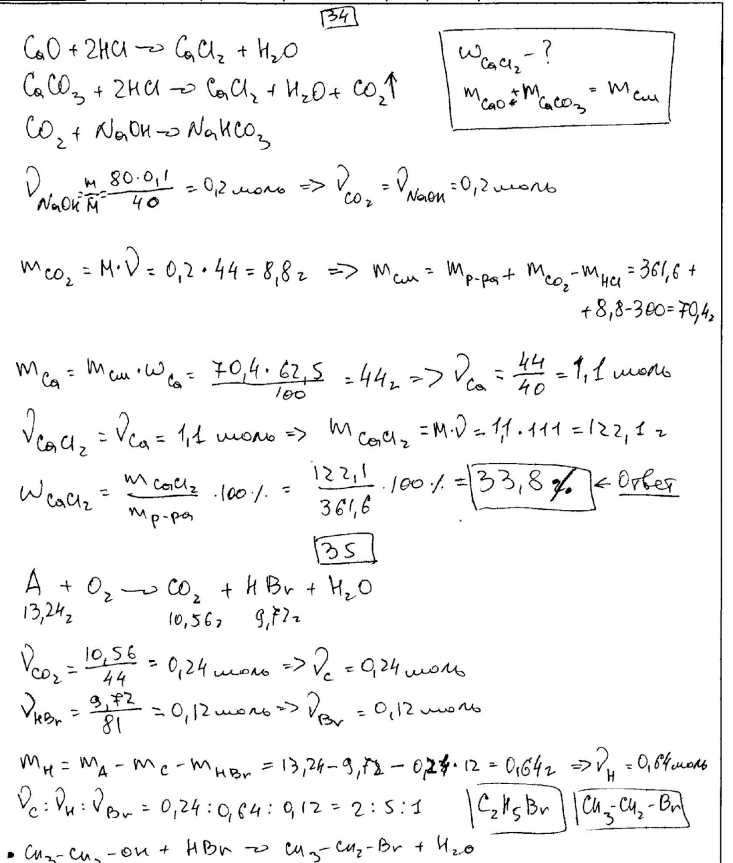 34
CaO + 2HCl → CaCl₂ + H₂O
CaCO₃ + 2HCl → CaCl₂ + H₂O + CO₂↑
CO₂ + NaOH → NaHCO₃
ω CaCl₂ - ?
m CaO + m CaCO₃ = m см
ν NaOH = m/M = 80·0,1/40 = 0,2 моль => ν CO₂ = ν NaOH = 0,2 моль
m CO₂ = M·ν = 0,2·44 = 8,8 г => m см = m р-ра + m CO₂ - m HCl = 361,6 +
+ 8,8-300 = 70,4 г
m Ca = m см · ω Ca = 70,4·62,5/100 = 44 г => ν Ca = 44/40 = 1,1 моль
ν CaCl₂ = ν Ca = 1,1 моль => m CaCl₂ = M·ν = 1,1·111 = 122,1 г
ω CaCl₂ = m CaCl₂/m р-ра · 100% = 122,1/361,6 · 100% = 33,8% ← Ответ
35
A + O₂ → CO₂ + HBr + H₂O
13,24 г 10,56 г 9,72 г
ν CO₂ = 10,56/44 = 0,24 моль => ν C = 0,24 моль
ν HBr = 9,72/81 = 0,12 моль => ν Br = 0,12 моль
m H = m A - m C - m HBr = 13,24-9,72 - 0,24·12 = 0,64 г => ν H = 0,64 моль
ν C : ν H : ν Br = 0,24 : 0,64 : 0,12 = 2 : 5 : 1 C₂H₅Br CH₃-CH₂-Br
• CH₃-CH₂-OH + HBr → CH₃-CH₂-Br + H₂O